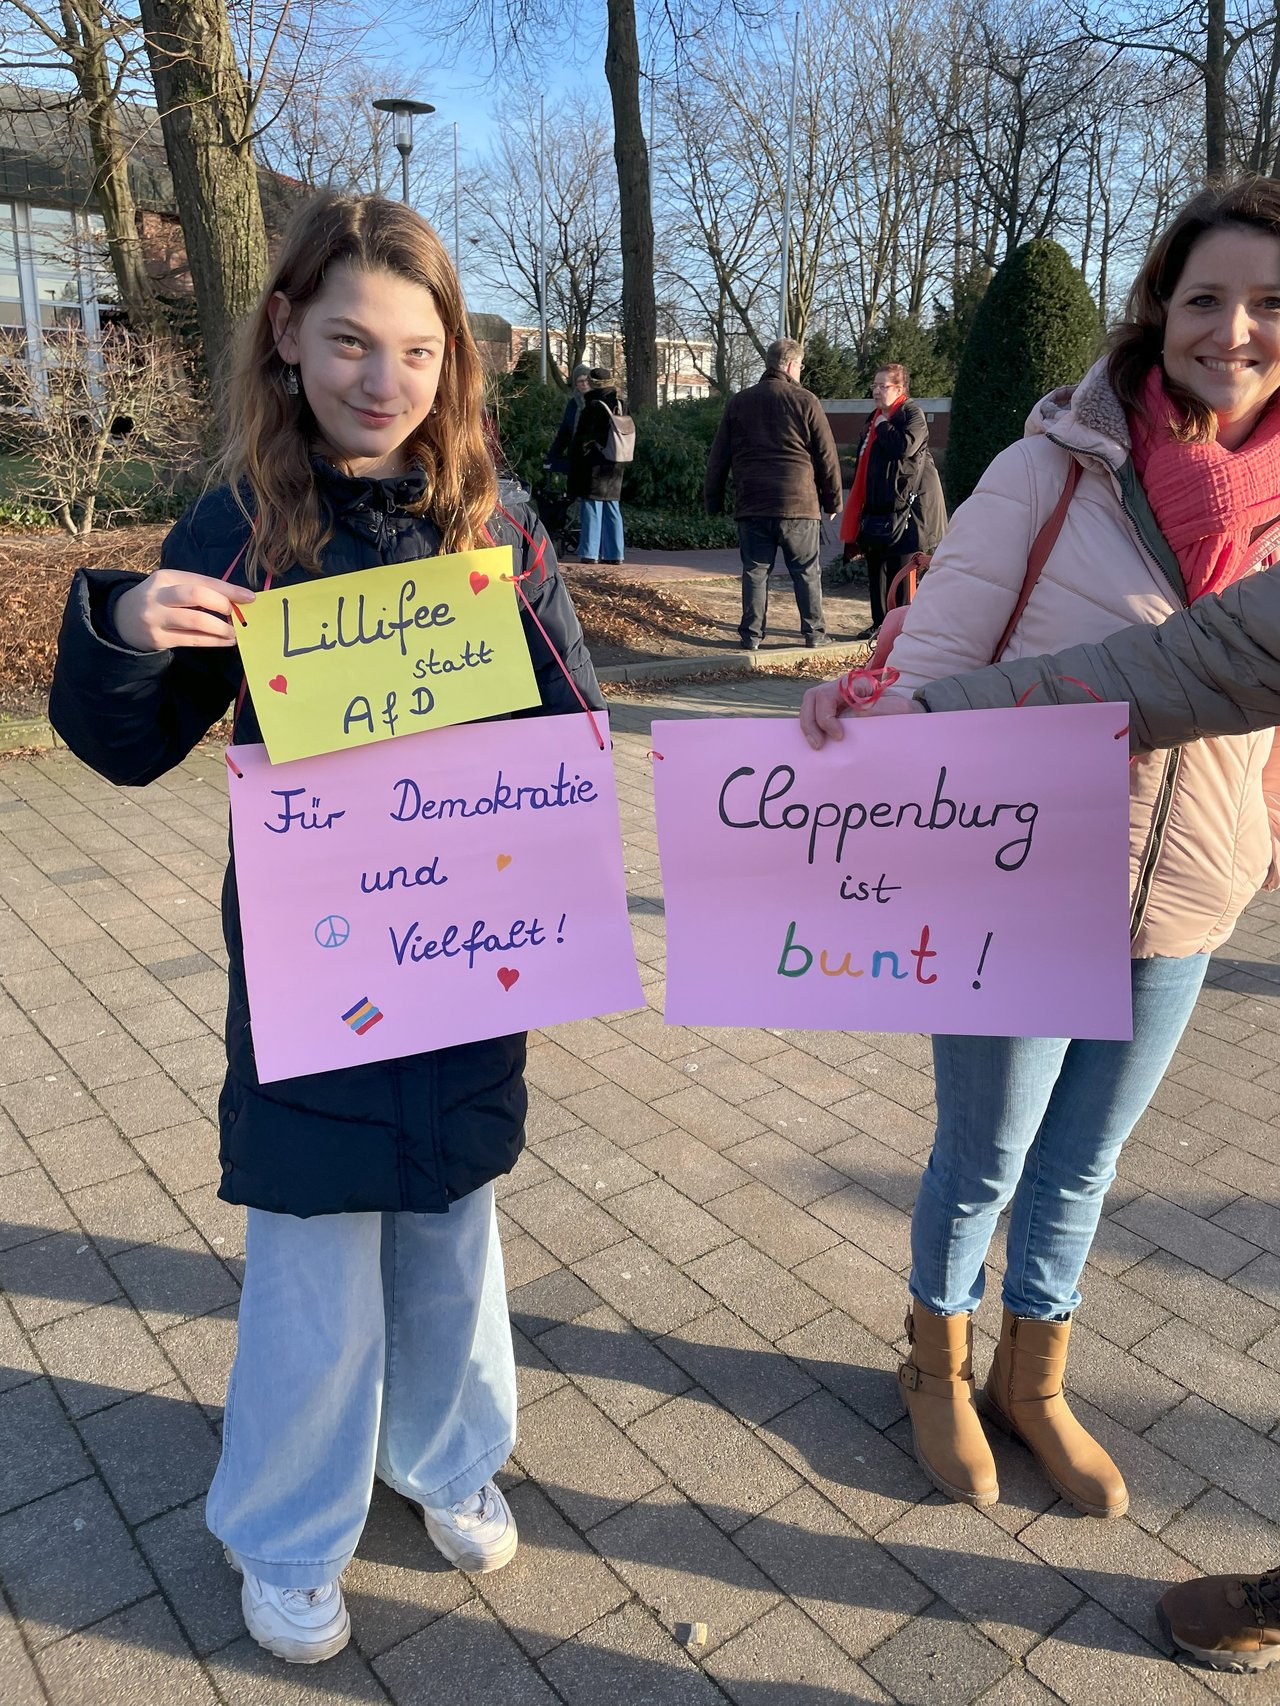 Lillifee
statt
AfD
Für Demokratie
und
Vielfalt!
Cloppenburg
ist
bunt!